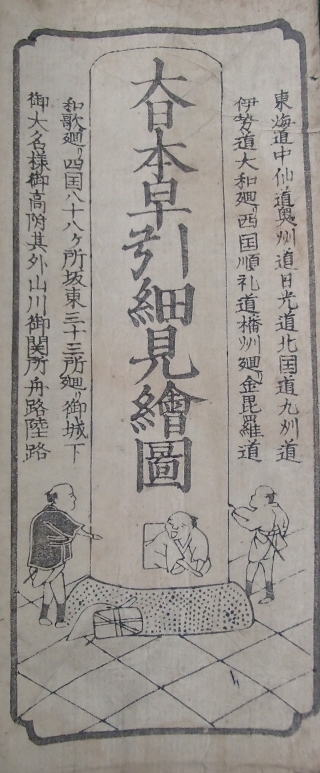 東海道中仙道奥州道日光道北国道九州道
伊勢道大和廻り西国順礼道播州廻り金毘羅道
大日本早引細見繪圖
和歌廻り四国八十八ヶ所坂東三十三所廻り御城下
御大名様御高附其外山川御関所舟路陸路